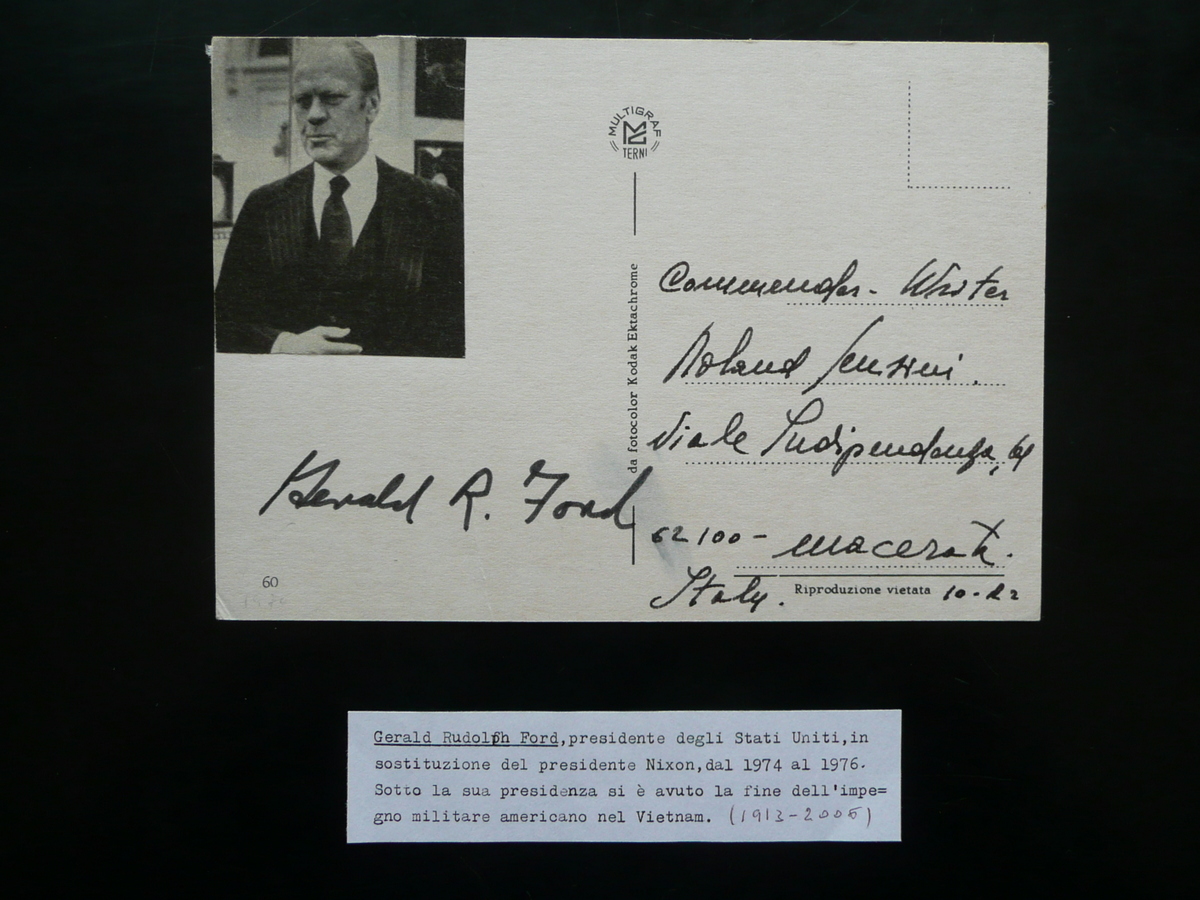 MULTIGRAF
TERNI
da fotocolor Kodak Ektachrome
Commendor. Writer
Roland
Viale Indipendenza, 61
62100 - Macerata.
Italy.
Gerald R. Ford
60
Riproduzione vietata
Gerald Rudolph Ford,presidente degli Stati Uniti,in
sostituzione del presidente Nixon,dal 1974 al 1976.
Sotto la sua presidenza si è avuto la fine dell'impe=
gno militare americano nel Vietnam. (1913-2006)